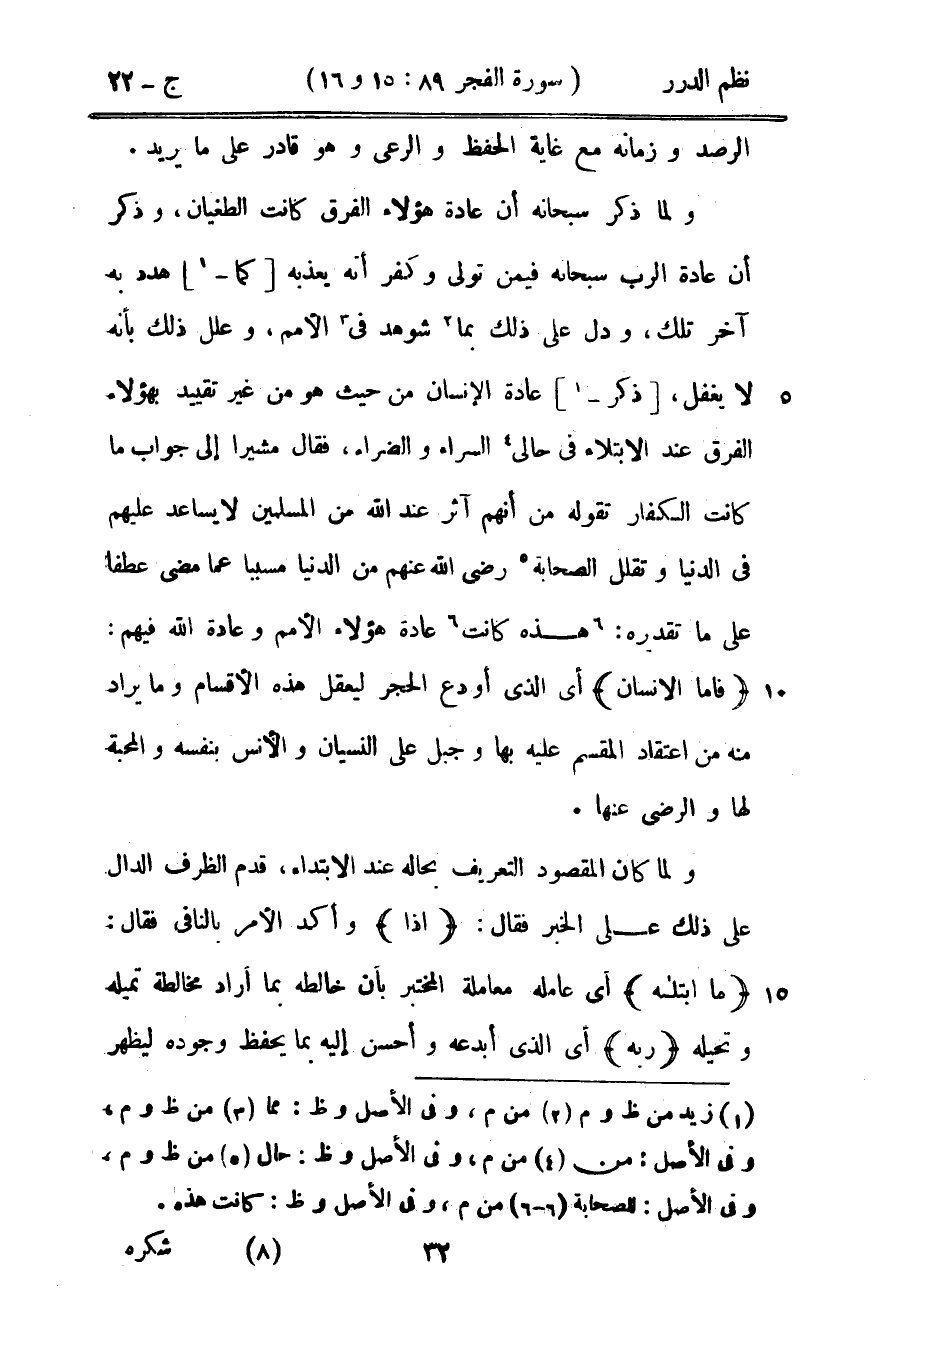 نظم الدرر ( سورة الفجر ٨٩ : ١٥ و ١٦ ) ج - ٢٢
الرصد و زمانه مع غاية الحفظ و الرعى و هو قادر على ما يريد .
و لما ذكر سبحانه أن عادة هؤلاء الفرق كانت الطغيان ، و ذكر
أن عادة الرب سبحانه فيمن تولى و كفر أنه يعذبه [ كما - ١ ] هدد به
آخر تلك ، و دل على ذلك بما ٢ شوهد فى ٣ الأمم ، و علل ذلك بأنه
٥ لا يغفل ، [ ذكر - ١ ] عادة الإنسان من حيث هو من غير تقييد بهؤلاء
الفرق عند الابتلاء فى حالى ٤ السراء و الضراء ، فقال مشيرا إلى جواب ما
كانت الكفار تقوله من أنهم آثر عند الله من المسلمين لا يساعد عليهم
فى الدنيا و تقلل الصحابة ٥ رضى الله عنهم من الدنيا مسببا عما مضى عطفا
على ما تقديره : ٦ هذه كانت ٦ عادة هؤلاء الأمم و عادة الله فيهم :
١٠ ﴿ فاما الانسان ﴾ أى الذى أودع الحجر ليعقل هذه الأقسام و ما يراد
منه من اعتقاد المقسم عليه بها و جبل على النسيان و الأنس بنفسه و المحبة
لها و الرضى عنها .
و لما كان المقصود التعريف بحاله عند الابتداء ، قدم الظرف الدال
على ذلك على الخبر فقال : ﴿ اذا ﴾ و أكد الأمر بالنافى فقال :
١٥ ﴿ ما ابتلٰه ﴾ أى عامله معاملة المختبر بأن خالطه بما أراد مخالطة تميله
و تحيله ﴿ ربه ﴾ أى الذى أبدعه و أحسن إليه بما يحفظ وجوده ليظهر
(١) زيد من ظ و م (٢) من م ، و فى الأصل و ظ : مما (٣) من ظ و م ،
و فى الأصل : من (٤) من م ، و فى الأصل و ظ : حال (٥) من ظ و م ،
و فى الأصل : للصحابة (٦-٦) من م ، و فى الأصل و ظ : كانت هذه .
٣٢ (٨) شكره